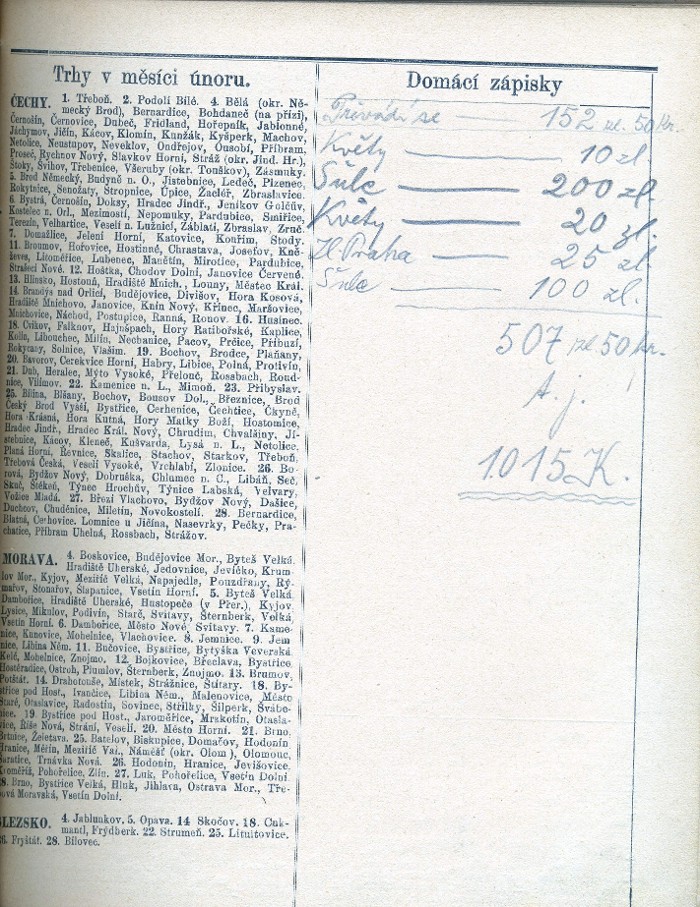 Trhy v měsíci únoru.
ČECHY. 1. Třeboň. 2. Podolí Bílé. 4. Bělá (okr. Ně-
mecký Brod), Bernardice, Bohdaneč (na přízi),
Černošín, Černovice, Dubeč, Fridland, Hořepník, Jablonné,
Jáchymov, Jičín, Kácov, Klomín, Kunžák, Kyšperk, Machov,
Netolice, Neustupov, Neveklov, Ondřejov, Ousobí, Příbram,
Proseč, Rychnov Nový, Slavkov Horní, Stráž (okr. Jind. Hr.),
Stoky, Švihov, Třebenice, Všeruby (okr. Tonškov), Zásmuky.
5. Brod Německý, Budyně n. O., Jistebnice, Ledeč, Plzenec,
Rokytnice, Senožaty, Stropnice, Úpice, Žacléř, Zbraslavice.
6. Bystrá, Černošín, Doksy, Hradec Jindř., Jeníkov Golčův,
Kostelec n. Orl., Mezimostí, Nepomuky, Pardubice, Smiřice,
Terezín, Velhartice, Veselí n. Lužnicí, Záblatí, Zbraslav, Zruč.
7. Domažlice, Jelení Horní, Katovice, Kouřim, Stody.
11. Broumov, Hořovice, Hostinné, Chrastava, Josefov, Kně-
ževes, Litoměřice, Lubenec, Manětín, Mirotice, Pardubice,
Strašecí Nové. 12. Hoštka, Chodov Dolní, Janovice Červené.
13. Hlinsko, Hostouň, Hradiště Mnich., Louny, Městec Král.
14. Brandýs nad Orlicí, Budějovice, Divišov, Hora Kosová,
Hradiště Mnichovo, Janovice, Knín Nový, Křinec, Maršovice,
Mnichovice, Náchod, Postupice, Ranná, Ronov. 16. Husinec.
18. Cvikov, Falknov, Hajnšpach, Hory Ratibořské, Kaplice,
Kolín, Libouchec, Milín, Nechanice, Pacov, Prčice, Přibuzí,
Rokycany, Solnice, Vlašim. 19. Bochov, Brodce, Pláňany,
20. Bavorov, Cerekvice Horní, Habry, Libice, Polná, Protivín,
21. Dub, Heralec, Mýto Vysoké, Přelouč, Rossbach, Roud-
nice, Vilímov. 22. Kamenice n. L., Mimoň. 23. Přibyslav.
25. Bílina, Blšany, Bochov, Bousov Dol., Březnice, Brod
Český Brod Vyšší, Bystřice, Cerhenice, Čechtice, Čkyně,
Hora Krásná, Hora Kutná, Hory Matky Boží, Hostomice,
Hradec Jindř., Hradec Král. Nový, Chrudim, Chvalšiny, Ji-
stebnice, Kácov, Kleneč, Kušvarda, Lysá n. L., Netolice,
Planá Horní, Řevnice, Skalice, Stachov, Starkov, Třeboň,
Třebová Česká, Veselí Vysoké, Vrchlabí, Zlonice. 26. Bo-
rová, Bydžov Nový, Dobruška, Chlumec n. C., Libáň, Seč,
Skuč, Štěkeň, Týnec Hrochův, Týnice Labská, Velvary,
Vožice Mladá. 27. Březí Vlachovo, Bydžov Nový, Dašice,
Duchcov, Chuděnice, Miletín, Novokostelí. 28. Bernardice,
Blatná, Cerhovice. Lomnice u Jičína, Nasevrky, Pečky, Pra-
chatice, Příbram Uhelná, Rossbach, Strážov.
MORAVA. 4. Boskovice, Budějovice Mor., Byteš Velká
Hradiště Uherské, Jedovnice, Jevíčko, Krum-
lov Mor., Kyjov, Meziříč Velká, Napajedla, Pouzdřany, Rý-
mařov, Stonařov, Šlapanice, Vsetín Horní. 5. Byteš Velká
Dambořice, Hradiště Uherské, Hustopeče (v Přer.), Kyjov
Lysice, Mikulov, Podivín, Starč, Svitavy, Šternberk, Velká
Vsetín Horní. 6. Dambořice, Město Nové, Svitavy. 7. Kame-
nice, Kunovice, Mohelnice, Vlachovice. 8. Jemnice. 9. Jem
nice, Libina Něm. 11. Bučovice, Bystřice, Bytyška Veverská
Kelč, Mohelnice, Znojmo. 12. Bojkovice, Břeclava, Bystřice
Hostěradice, Ostroh, Plumlov, Šternberk, Znojmo. 13. Brumov,
Potštát. 14. Drahotouše, Místek, Strážnice, Štítary. 18. By-
střice pod Host., Ivančice, Libina Něm., Malenovice, Město
Staré, Otaslavice, Radostín, Sovinec, Střílky, Šilperk, Švábe-
nice. 19. Bystřice pod Host., Jaroměřice, Mrskotín, Otasla-
vice, Říše Nová, Strání, Veselí. 20. Město Horní. 21. Brno,
Brtnice, Želetava. 25. Batelov, Biskupice, Domašov, Hodonín
Hranice, Měřín, Meziříč Val., Náměšť (okr. Olom), Olomouc,
Šaratice, Trnávka Nová. 26. Hodonín, Hranice, Jevišovice,
Kroměříž, Pohořelice, Zlín. 27. Luk, Pohořelice, Vsetín Dolní
28. Brno, Bystřice Velká, Hluk, Jihlava, Ostrava Mor., Tře-
bová Moravská, Vsetín Dolní.
SLEZSKO. 4. Jablunkov. 5. Opava. 14 Skočov. 18. Cuk-
mantl, Frýdberk. 22. Strumeň. 25. Litultovice.
26. Fryštát. 28. Bílovec.
Domácí zápisky
Přivádí se 152 zl. 50 kr.
Květy 10 zl
Šulc 200 zl.
Květy 20 zl.
Hl. Praha 25 zl.
Šulc 100 zl.
507 zl 50 kr.
A. j.
1015 K.